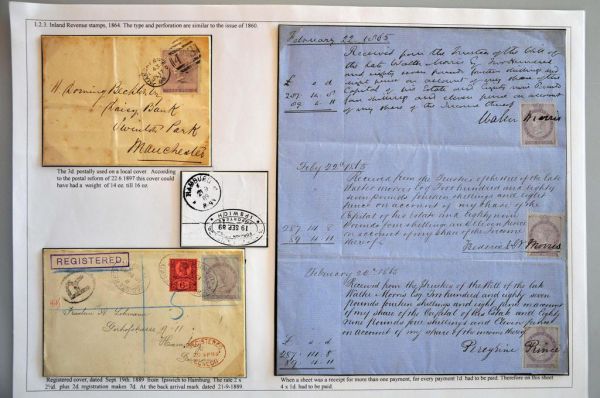 1.2.3. Inland Revenue stamps, 1864. The type and perforation are similar to the issue of 1860.
Daisy Bank
Swinton Park
Manchester
The 3d. postally used on a local cover. According
to the postal reform of 22 6 1897 this cover could
have had a weight of 14 oz. till 16 oz.
HAMBURG
IPSWICH
19 SEP 89
REGISTERED.
5
Registered cover, dated Sept. 19th. 1889 from Ipswich to Hamburg. The rate 2 x
2½d. plus 2d. registration makes 7d. At the back arrival mark dated 21-9-1889
February 22 1865
Received from the Trustees of the Will of
the late Walter Morris Esq Two Hundred
and eighty seven pounds fourteen shillings and
eight pence on account of my share of the
Capital of his Estate and Eighty nine Pounds
four shillings and eleven pence on account
of my share of the Income thereof
£ s d
287 14 8
89 4 11
Walter Morris
Feby 22nd 1865
Received from the Trustees of the Will of the late
Walter Morris Esq Two hundred and eighty
seven pounds fourteen shillings and eight
pence on account of my share of the
Capital of his Estate and Eighty nine
Pounds four shillings and eleven pence
on account of my share of the Income
thereof
287 14 8
89 4 11
Morris
February 22 1865
Received from the Trustees of the Will of the late
Walter Morris Esq Two hundred and eighty seven
pounds fourteen shillings and eight pence on account
of my share of the Capital of his Estate and Eighty
nine Pounds four shillings and Eleven pence
on account of my share of the Income thereof
£ s d
287 14 8
89 4 11
Peregrine Prince
When a sheet was a receipt for more than one payment, for every payment 1d. had to be paid. Therefore on this sheet
4 x 1d. had to be paid.